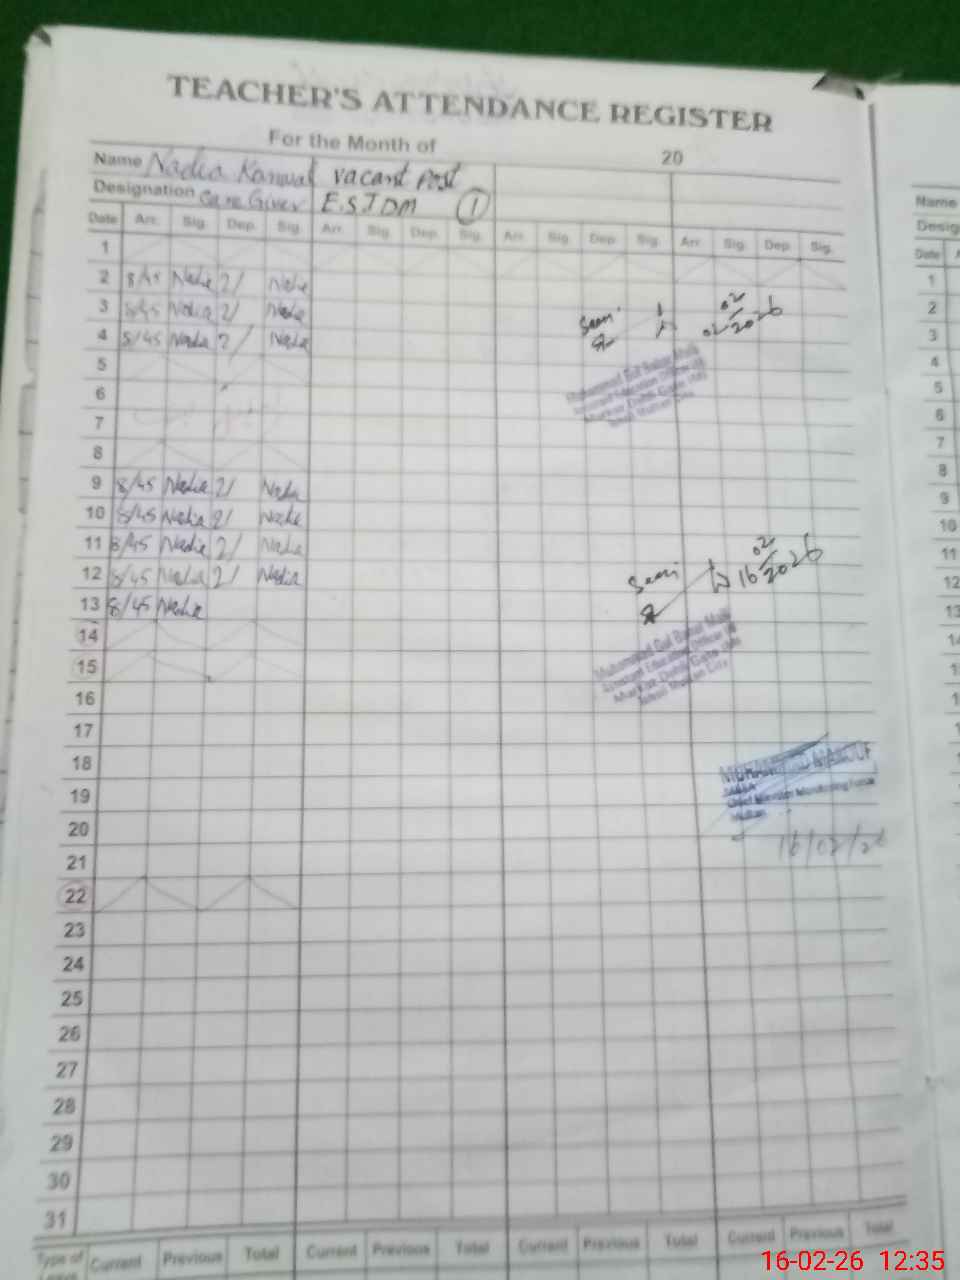 TEACHER'S ATTENDANCE REGISTER
For the Month of 20
Name Nadia Kanwal vacant Post
Designation Care Giver E.S.T DM 1
Date Arr. Sig. Dep. Sig. Arr. Sig. Dep. Sig. Arr. Sig. Dep. Sig. Arr. Sig. Dep. Sig.
1
2 8/45 Nadia 2/ Nadia
3 8/45 Nadia 2/ Nadia
4 8/45 Nadia 2/ Nadia
Seen 02 02/2026
5
6
Muhammad Gul Babar Malik
Assistant Education Officer
Markaz Dehli Gate
Tehsil Multan City
7
8
9 8/45 Nadia 2/ Nadia
10 8/45 Nadia 2/ Nadia
11 8/45 Nadia 2/ Nadia
12 8/45 Nadia 2/ Nadia
Seen 16 02/2026
13 8/45 Nadia
14
15
Muhammad Gul Babar Malik
Assistant Education Officer
Markaz Dehli Gate
Tehsil Multan City
16
17
18
MUHAMMAD
Chief Minister Monitoring Force
Multan
19
20
16/02/26
21
22
23
24
25
26
27
28
29
30
31
Type of Current Previous Total Current Previous Total Current Previous Total Current Previous Total
Name
Date
1
2
3
4
5
6
7
8
9
10
11
12
13
14
16-02-26 12:35